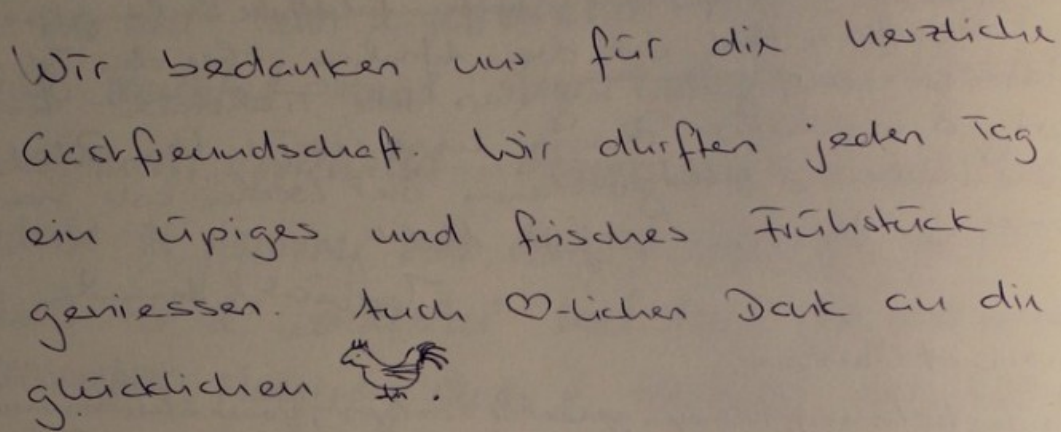 Wir bedanken uns für die herzliche
Gastfreundschaft. Wir durften jeden Tag
ein üpiges und frisches Frühstück
geniessen. Auch ♡-lichen Dank an die
glücklichen 🐓.